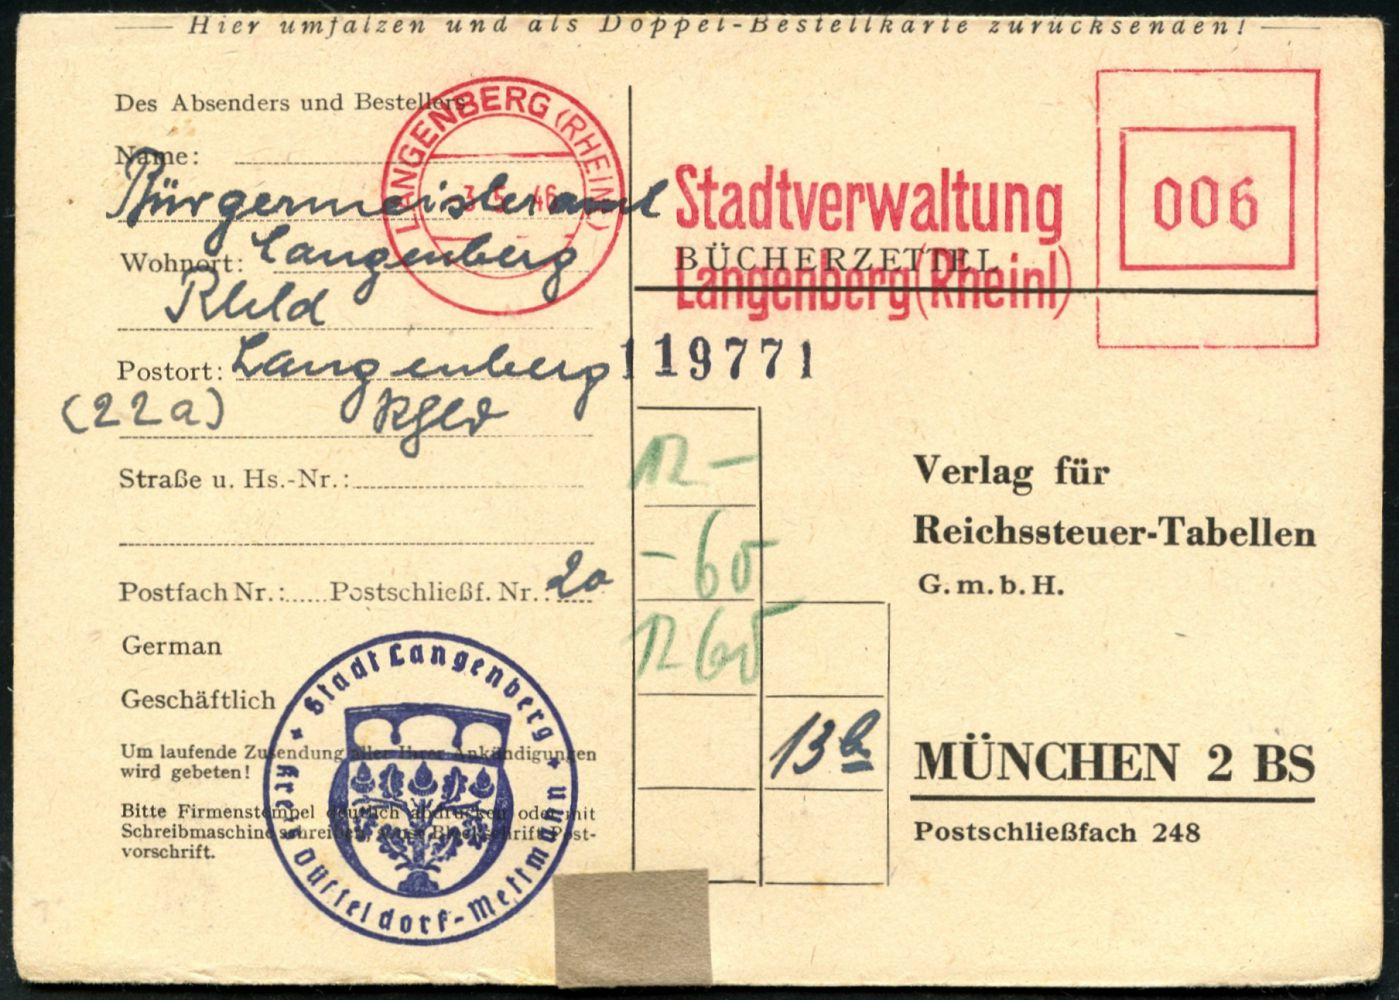 Hier umfalzen und als Doppel-Bestellkarte zurücksenden!
Des Absenders und Bestellers
Name:
Bürgermeisteramt
Wohnort: Langenberg
Rhld
Postort: Langenberg
(22a) Rhld
Straße u. Hs.-Nr.:
Postfach Nr.: Postschließf. Nr.: 20
German
Geschäftlich
Um laufende Zusendung aller Ihrer Ankündigungen
wird gebeten!
Bitte Firmenstempel deutlich abdrucken oder mit
Schreibmaschine schreiben, sonst Blockschrift. Post-
vorschrift.
Stadt Langenberg
Kreis Düsseldorf-Mettmann
LANGENBERG (RHEINL)
3.5.46
Stadtverwaltung
Langenberg (Rheinl)
006
BÜCHERZETTEL
119771
12 -
- 60
12 60
13 b
Verlag für
Reichssteuer-Tabellen
G.m.b.H.
MÜNCHEN 2 BS
Postschließfach 248